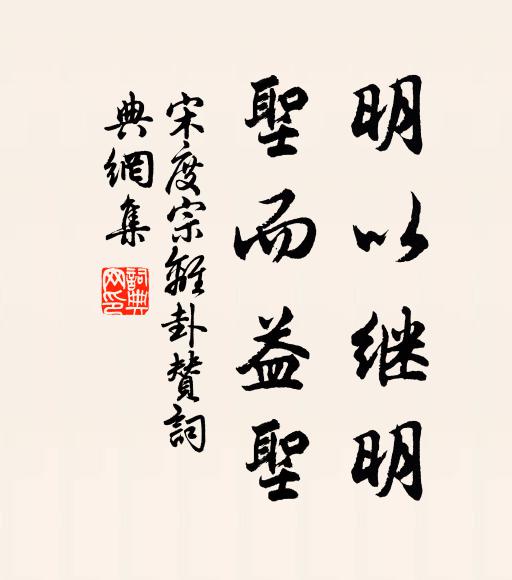 明以继明
聖而益聖
宋度宗離卦賛詞
典網集
詞典
网印